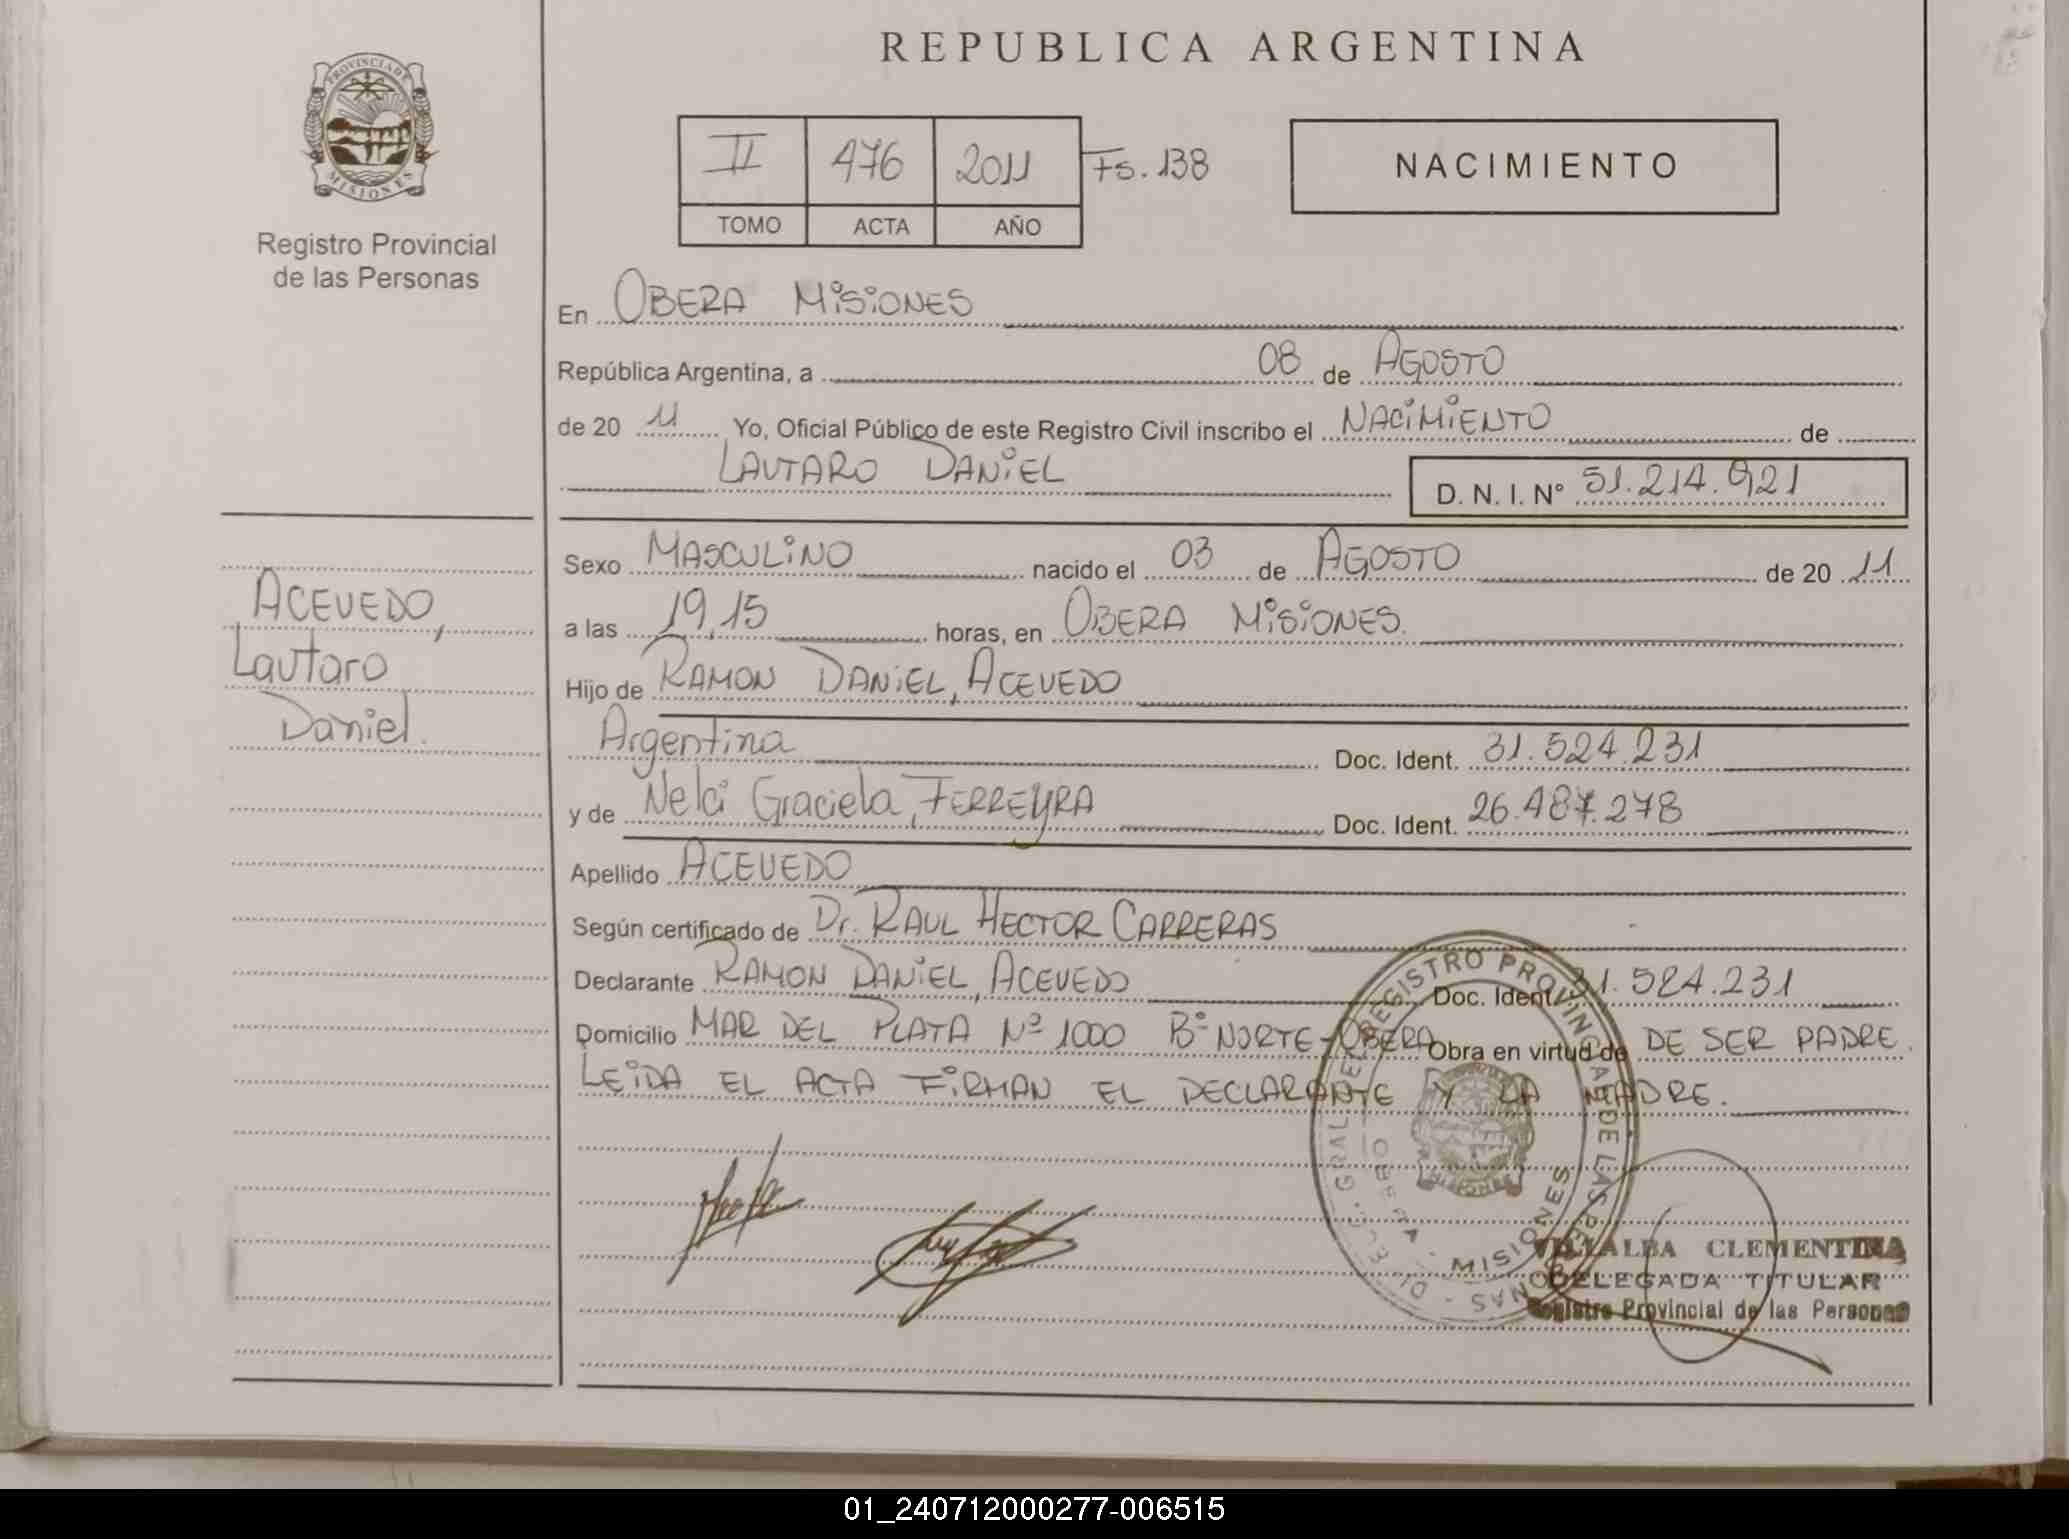 REPUBLICA ARGENTINA
PROVINCIA DE
MISIONES
Registro Provincial
de las Personas
II 476 2011 Fs. 138
TOMO ACTA AÑO
NACIMIENTO
En OBERA MISIONES
República Argentina, a 08 de AGOSTO
de 20 11 Yo, Oficial Público de este Registro Civil inscribo el NACIMIENTO de
LAUTARO DANIEL D. N. I. Nº 51.214.921
Sexo MASCULINO nacido el 03 de AGOSTO de 20 11
a las 19,15 horas, en OBERA MISIONES.
Hijo de RAMON DANIEL, ACEVEDO
Argentina Doc. Ident. 31.524.231
y de Nelci Graciela, FERREYRA Doc. Ident. 26.487.278
Apellido ACEVEDO
Según certificado de Dr. RAUL HECTOR CARRERAS
Declarante RAMON DANIEL, ACEVEDO Doc. Ident. 31.524.231
Domicilio MAR DEL PLATA Nº 1000 Bº NORTE-OBERA Obra en virtud de DE SER PADRE.
LEIDA EL ACTA FIRMAN EL DECLARANTE Y LA MADRE.
ACEVEDO,
Lautaro
Daniel.
REGISTRO PROVINCIAL DE LAS PERSONAS
OBERA - MISIONES
VILLALBA CLEMENTINA
DELEGADA TITULAR
Registro Provincial de las Personas
01_240712000277-006515